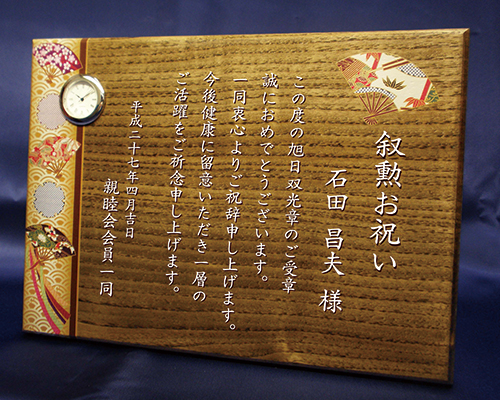 叙勲お祝い
石田 昌夫 様
この度の旭日双光章のご受章
誠におめでとうございます。
一同衷心よりご祝辞申し上げます。
今後健康に留意いただき一層の
ご活躍をご祈念申し上げます。
平成二十七年四月吉日
親睦会会員一同